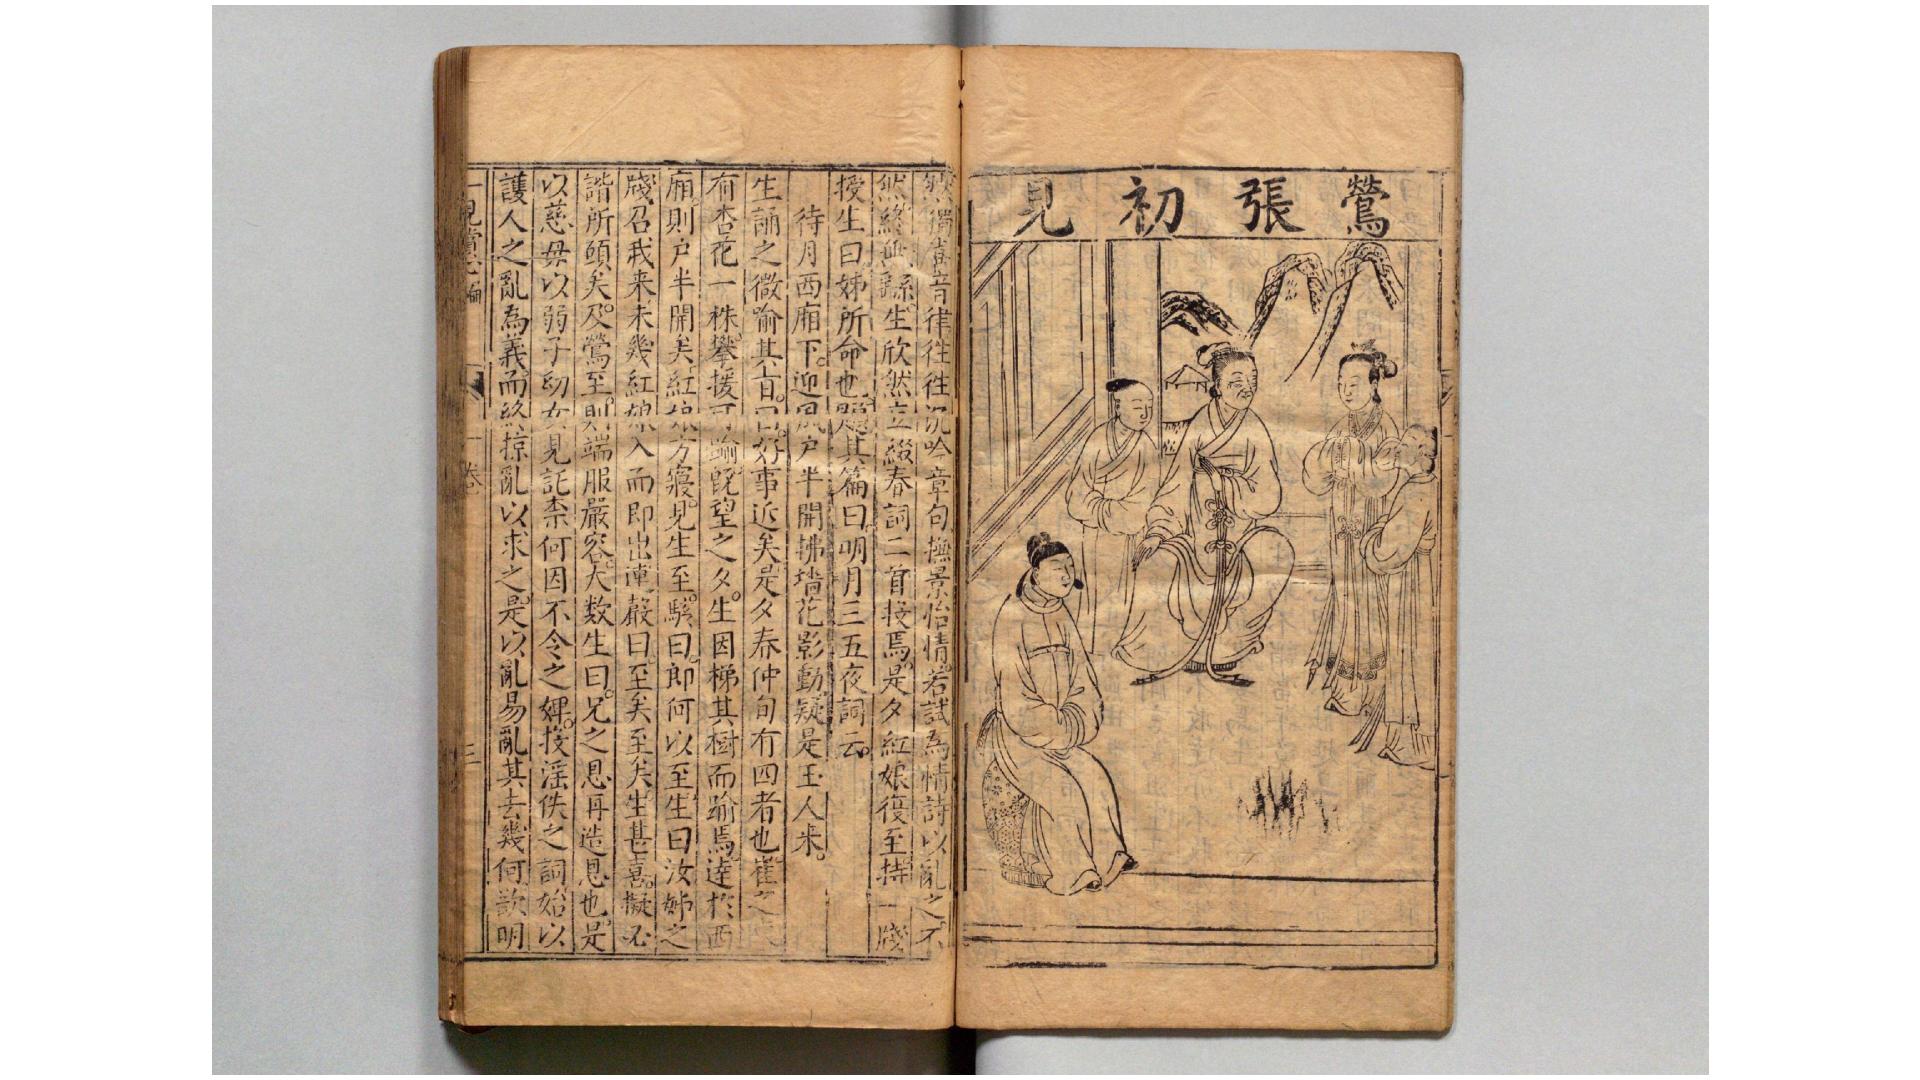 鶯張初見
然獨喜音律徃徃沉吟章句撫景怡情若試爲情詩以亂之不
然終無繇生欣然立綴春詞二首授焉是夕紅娘復至持一牋
授生曰姊所命也題其篇曰明月三五夜詞云
待月西廂下迎風户半開拂墻花影動疑是玉人来
生誦之微喻其旨曰好事近矣是夕春仲旬有四者也崔之
有杏花一株攀援可踰既望之夕生因梯其樹而踰焉逹於西
廂則户半開矣紅娘方寢見生至駭曰郎何以至生曰汝姊之
牋召我来未幾紅娘入而即出連聲曰至矣至矣生甚喜擬必
諧所願矣及鶯至則端服嚴容大數生曰兄之恩再造恩也是
以慈母以弱子幼女見託柰何因不令之婢投滛佚之詞始以
護人之亂為義而終掠亂以求之是以亂易亂其去幾何欲明
一見賞心編
卷一
三